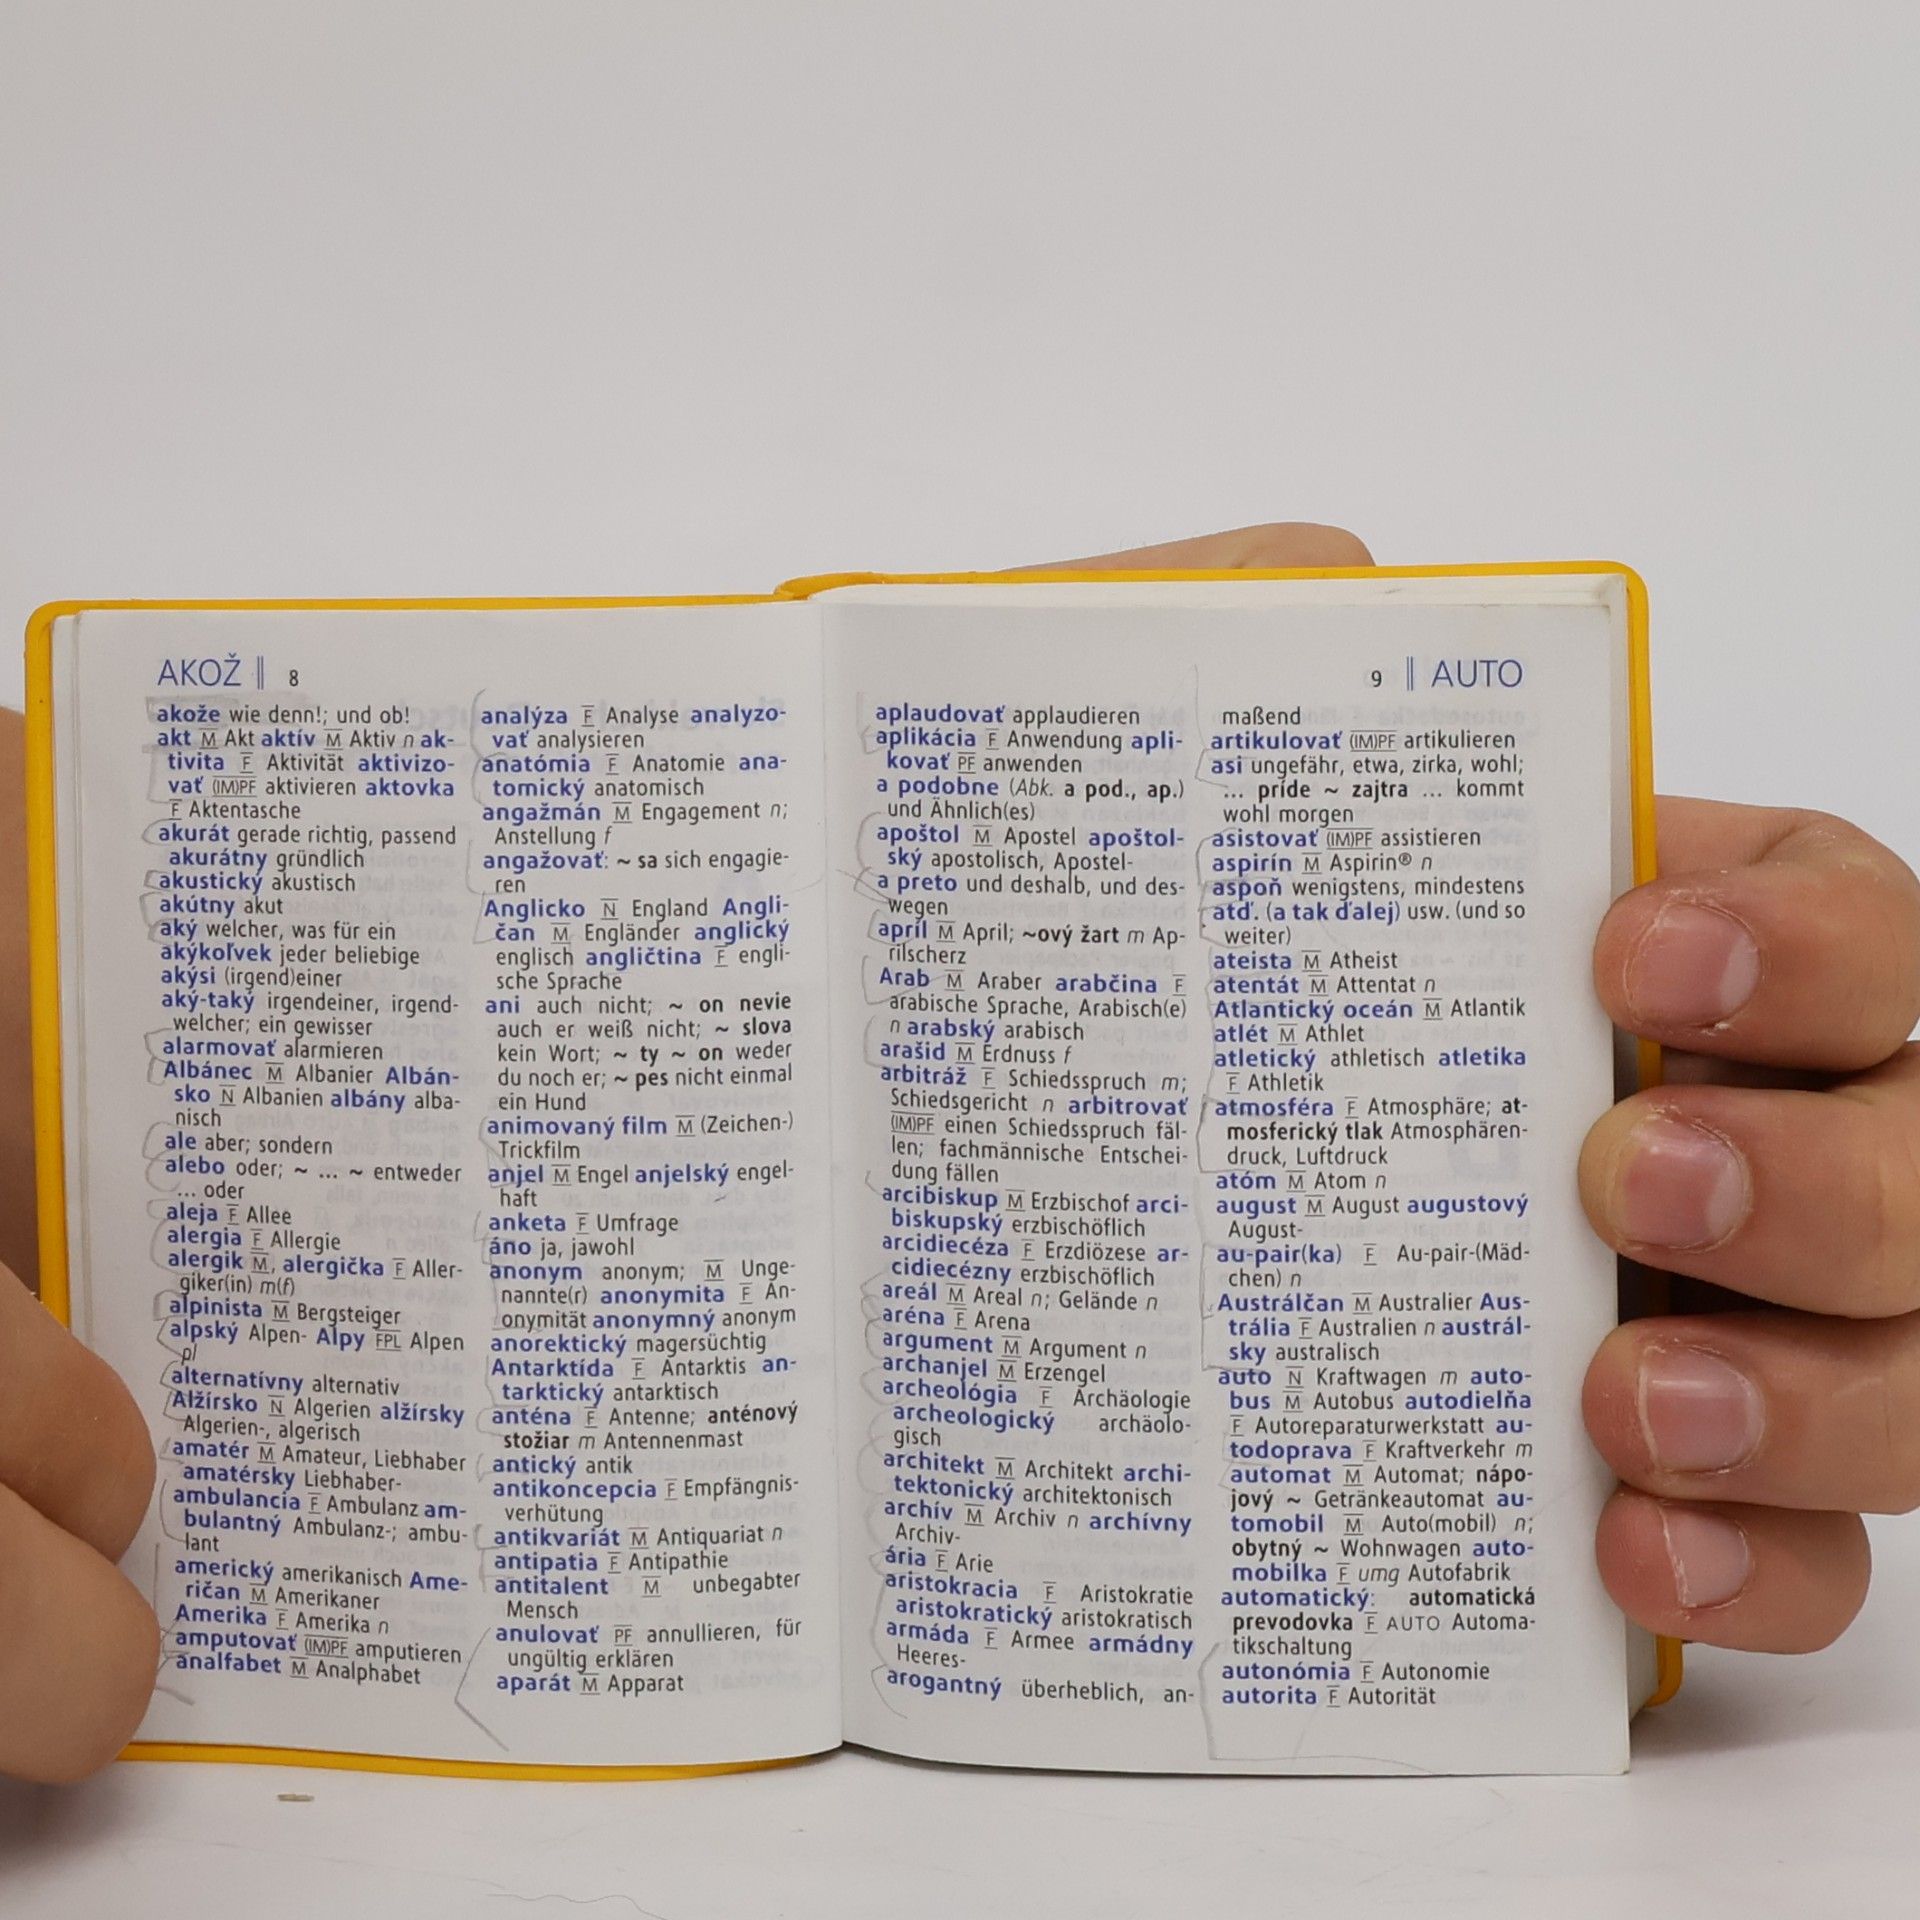 AKOŽ || 8
akože wie denn!; und ob!
akt M Akt aktív M Aktiv n ak-
tivita F Aktivität aktivizo-
vať (IM)PF aktivieren aktovka
F Aktentasche
akurát gerade richtig, passend
akurátny gründlich
akustický akustisch
akútny akut
aký welcher, was für ein
akýkoľvek jeder beliebige
akýsi (irgend)einer
aký-taký irgendeiner, irgend-
welcher; ein gewisser
alarmovať alarmieren
Albánec M Albanier Albán-
sko N Albanien albány alba-
nisch
ale aber; sondern
alebo oder; ~ ... ~ entweder
... oder
aleja F Allee
alergia F Allergie
alergik M, alergička F Aller-
giker(in) m(f)
alpinista M Bergsteiger
alpský Alpen- Alpy FPL Alpen
pl
alternatívny alternativ
Alžírsko N Algerien alžírsky
Algerien-, algerisch
amatér M Amateur, Liebhaber
amatérsky Liebhaber-
ambulancia F Ambulanz am-
bulantný Ambulanz-; ambu-
lant
americký amerikanisch Ame-
ričan M Amerikaner
Amerika F Amerika n
amputovať (IM)PF amputieren
analfabet M Analphabet
analýza F Analyse analyzo-
vať analysieren
anatómia F Anatomie ana-
tomický anatomisch
angažmán M Engagement n;
Anstellung f
angažovať: ~ sa sich engagie-
ren
Anglicko N England Angli-
čan M Engländer anglický
englisch angličtina F engli-
sche Sprache
ani auch nicht; ~ on nevie
auch er weiß nicht; ~ slova
kein Wort; ~ ty ~ on weder
du noch er; ~ pes nicht einmal
ein Hund
animovaný film M (Zeichen-)
Trickfilm
anjel M Engel anjelský engel-
haft
anketa F Umfrage
áno ja, jawohl
anonym anonym; M Unge-
nannte(r) anonymita F An-
onymität anonymný anonym
anorektický magersüchtig
Antarktída F Antarktis an-
tarktický antarktisch
anténa F Antenne; anténový
stožiar m Antennenmast
antický antik
antikoncepcia F Empfängnis-
verhütung
antikvariát M Antiquariat n
antipatia F Antipathie
antitalent M unbegabter
Mensch
anulovať PF annullieren, für
ungültig erklären
aparát M Apparat
9 || AUTO
aplaudovať applaudieren
aplikácia F Anwendung apli-
kovať PF anwenden
a podobne (Abk. a pod., ap.)
und Ähnlich(es)
apoštol M Apostel apoštol-
ský apostolisch, Apostel-
a preto und deshalb, und des-
wegen
apríl M April; ~ový žart m Ap-
rilscherz
Arab M Araber arabčina F
arabische Sprache, Arabisch(e)
n arabský arabisch
arašid M Erdnuss f
arbitráž F Schiedsspruch m;
Schiedsgericht n arbitrovať
(IM)PF einen Schiedsspruch fäl-
len; fachmännische Entschei-
dung fällen
arcibiskup M Erzbischof arci-
biskupský erzbischöflich
arcidiecéza F Erzdiözese ar-
cidiecézny erzbischöflich
areál M Areal n; Gelände n
aréna F Arena
argument M Argument n
archanjel M Erzengel
archeológia F Archäologie
archeologický archäolo-
gisch
architekt M Architekt archi-
tektonický architektonisch
archív M Archiv n archívny
Archiv-
ária F Arie
aristokracia F Aristokratie
aristokratický aristokratisch
armáda F Armee armádny
Heeres-
arogantný überheblich, an-
maßend
artikulovať (IM)PF artikulieren
asi ungefähr, etwa, zirka, wohl;
... príde ~ zajtra ... kommt
wohl morgen
asistovať (IM)PF assistieren
aspirín M Aspirin® n
aspoň wenigstens, mindestens
atď. (a tak ďalej) usw. (und so
weiter)
ateista M Atheist
atentát M Attentat n
Atlantický oceán M Atlantik
atlét M Athlet
atletický athletisch atletika
F Athletik
atmosféra F Atmosphäre; at-
mosferický tlak Atmosphären-
druck, Luftdruck
atóm M Atom n
august M August augustový
August-
au-pair(ka) F Au-pair-(Mäd-
chen) n
Austrálčan M Australier Aus-
trália F Australien n austrál-
sky australisch
auto N Kraftwagen m auto-
bus M Autobus autodielňa
F Autoreparaturwerkstatt au-
todoprava F Kraftverkehr m
automat M Automat; nápo-
jový ~ Getränkeautomat au-
tomobil M Auto(mobil) n;
obytný ~ Wohnwagen auto-
mobilka F umg Autofabrik
automatický: automatická
prevodovka F AUTO Automa-
tikschaltung
autonómia F Autonomie
autorita F Autorität